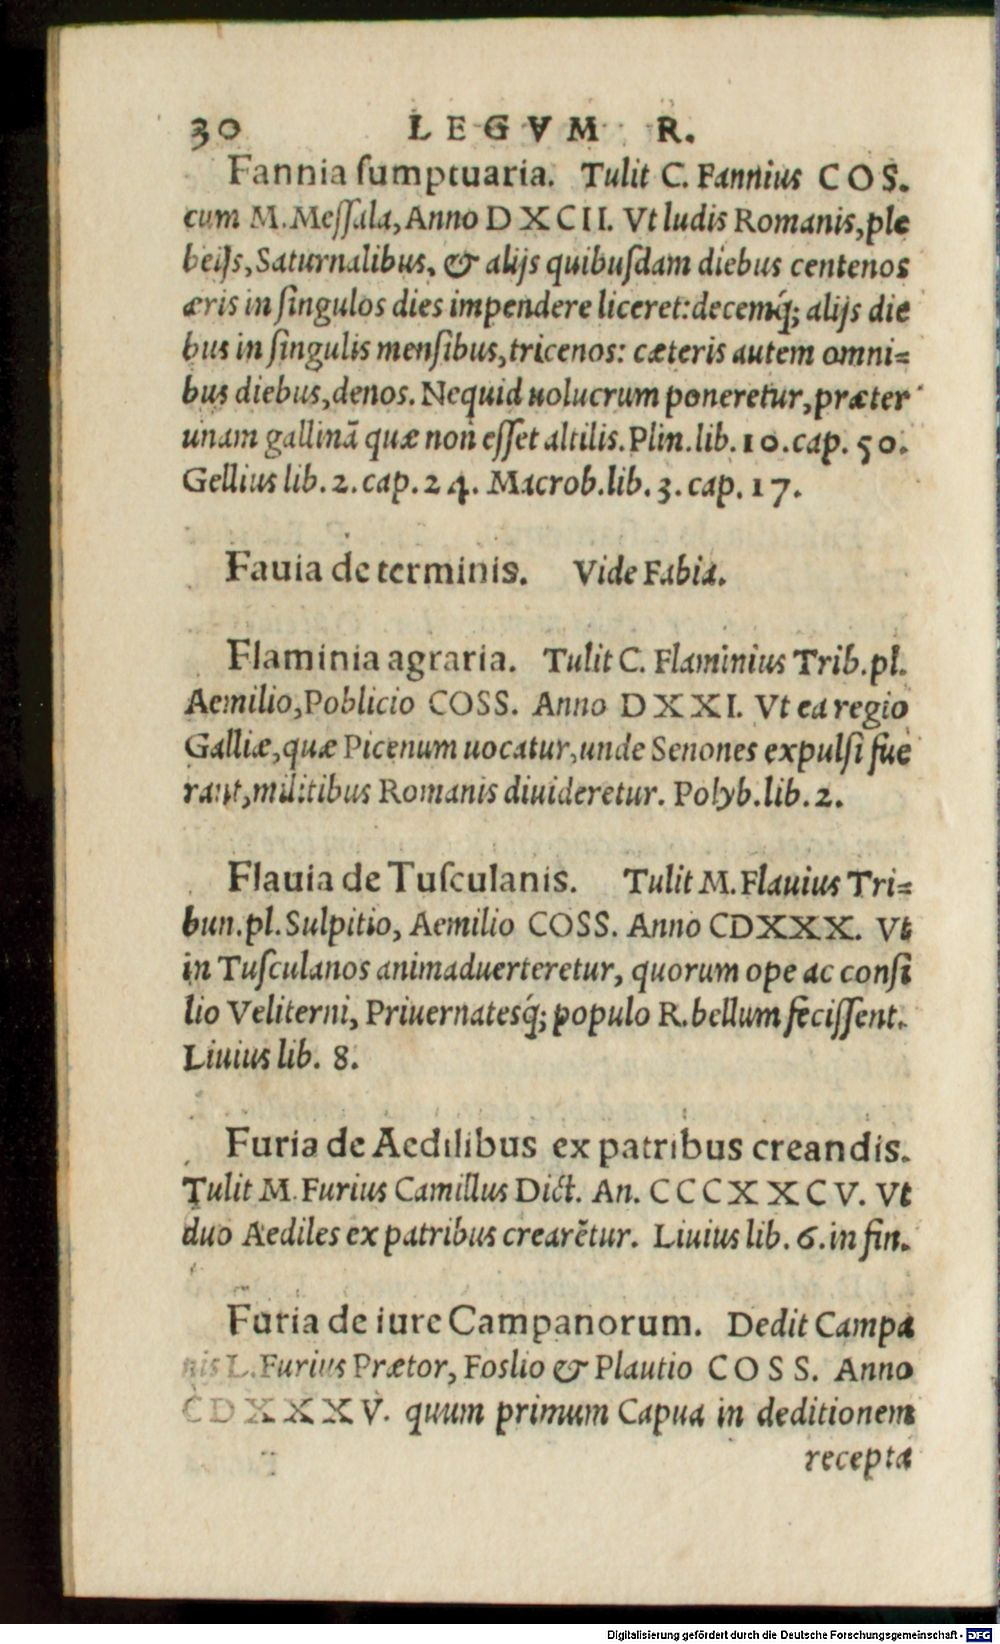 30 LEGVM R.
Fannia ſumptuaria. Tulit C. Fannius COS.
cum M. Meſſala, Anno DXCII. Vt ludis Romanis, ple
beijs, Saturnalibus, & alijs quibuſdam diebus centenos
æris in ſingulos dies impendere liceret: decemq́; alijs die
bus in ſingulis menſibus, tricenos: cæteris autem omni=
bus diebus, denos. Nequid uolucrum poneretur, præter
unam gallinã quæ non eſſet altilis. Plin. lib. 10. cap. 50.
Gellius lib. 2. cap. 24. Macrob. lib. 3. cap. 17.
Fauia de terminis. Vide Fabia.
Flaminia agraria. Tulit C. Flaminius Trib. pl.
Aemilio, Poblicio COSS. Anno DXXI. Vt ea regio
Galliæ, quæ Picenum uocatur, unde Senones expulſi fue
rant, militibus Romanis diuideretur. Polyb. lib. 2.
Flauia de Tuſculanis. Tulit M. Flauius Tri=
bun. pl. Sulpitio, Aemilio COSS. Anno CDXXX. Vt
in Tuſculanos animaduerteretur, quorum ope ac conſi
lio Veliterni, Priuernatesq́; populo R. bellum feciſſent.
Liuius lib. 8.
Furia de Aedilibus ex patribus creandis.
Tulit M. Furius Camillus Dict. An. CCCXXCV. Vt
duo Aediles ex patribus crearẽtur. Liuius lib. 6. in fin.
Furia de iure Campanorum. Dedit Campa
nis L. Furius Prætor, Foslio & Plautio COSS. Anno
CDXXXV. quum primum Capua in deditionem
recepta
Digitalisierung gefördert durch die Deutsche Forschungsgemeinschaft - DFG